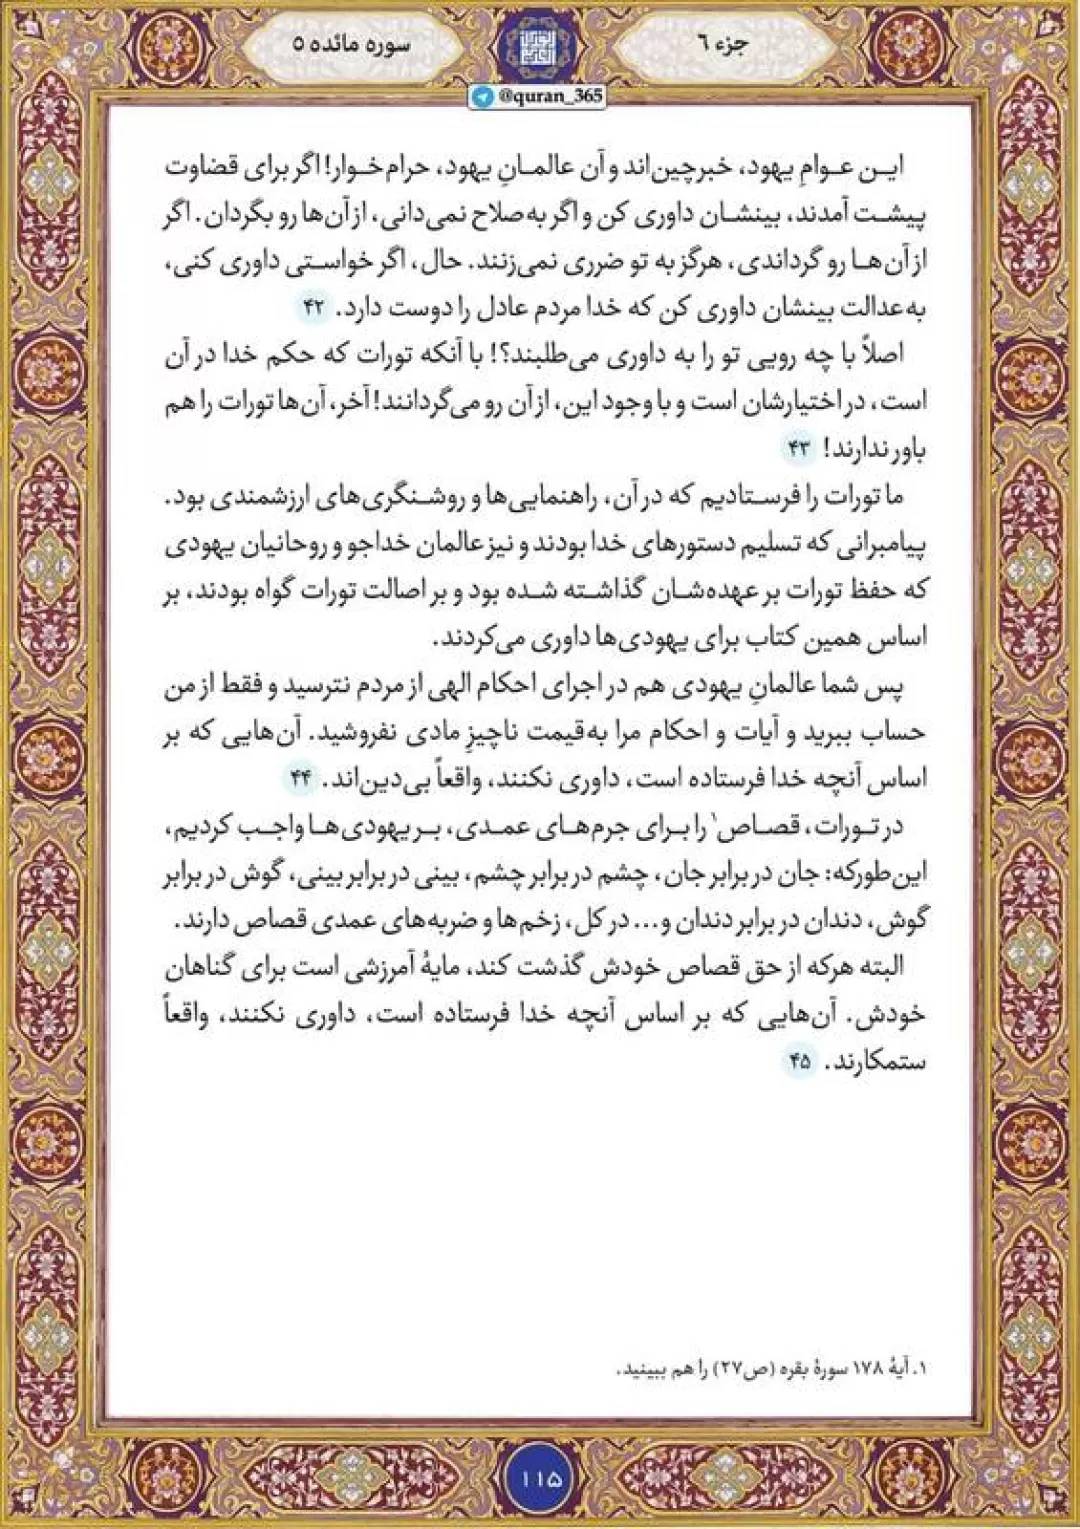 جزء ۶
سوره مائده ۵
@quran_365
این عوامِ یهود، خبرچین‌اند و آن عالمانِ یهود، حرام‌خوار! اگر برای قضاوت
پیشت آمدند، بینشان داوری کن و اگر به‌صلاح نمی‌دانی، از آن‌ها رو بگردان. اگر
از آن‌ها رو گرداندی، هرگز به تو ضرری نمی‌زنند. حال، اگر خواستی داوری کنی،
به‌عدالت بینشان داوری کن که خدا مردم عادل را دوست دارد. ۴۲
اصلاً با چه رویی تو را به داوری می‌طلبند؟! با آنکه تورات که حکم خدا در آن
است، در اختیارشان است و با وجود این، از آن رو می‌گردانند! آخر، آن‌ها تورات را هم
باور ندارند! ۴۳
ما تورات را فرستادیم که در آن، راهنمایی‌ها و روشنگری‌های ارزشمندی بود.
پیامبرانی که تسلیم دستورهای خدا بودند و نیز عالمان خداجو و روحانیان یهودی
که حفظ تورات بر عهده‌شان گذاشته شده بود و بر اصالت تورات گواه بودند، بر
اساس همین کتاب برای یهودی‌ها داوری می‌کردند.
پس شما عالمانِ یهودی هم در اجرای احکام الهی از مردم نترسید و فقط از من
حساب ببرید و آیات و احکام مرا به‌قیمت ناچیزِ مادی نفروشید. آن‌هایی که بر
اساس آنچه خدا فرستاده است، داوری نکنند، واقعاً بی‌دین‌اند. ۴۴
در تورات، قصاص۱ را برای جرم‌های عمدی، بر یهودی‌ها واجب کردیم،
این‌طورکه: جان در برابر جان، چشم در برابر چشم، بینی در برابر بینی، گوش در برابر
گوش، دندان در برابر دندان و... در کل، زخم‌ها و ضربه‌های عمدی قصاص دارند.
البته هرکه از حق قصاص خودش گذشت کند، مایهٔ آمرزشی است برای گناهان
خودش. آن‌هایی که بر اساس آنچه خدا فرستاده است، داوری نکنند، واقعاً
ستمکارند. ۴۵
۱. آیهٔ ۱۷۸ سورهٔ بقره (ص۲۷) را هم ببینید.
۱۱۵